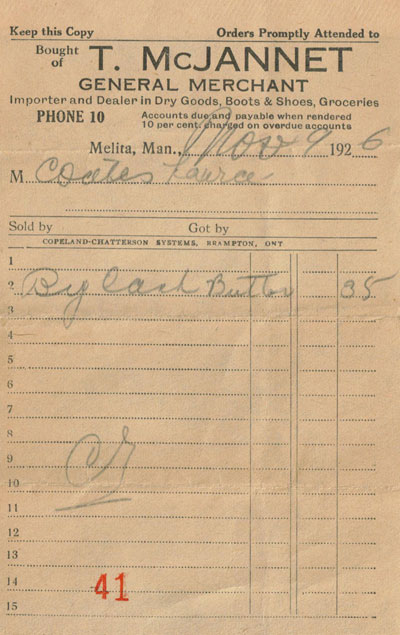 Keep this Copy Orders Promptly Attended to
Bought of T. McJANNET
GENERAL MERCHANT
Importer and Dealer in Dry Goods, Boots & Shoes, Groceries
PHONE 10 Accounts due and payable when rendered
10 per cent. charged on overdue accounts
Melita, Man., Nov 9 1926
M Coates
Sold by Got by
COPELAND-CHATTERSON SYSTEMS, BRAMPTON, ONT
1
2 By Cash Butter 35
3
4
5
6
7
8
9
10
11
12
13
14 41
15